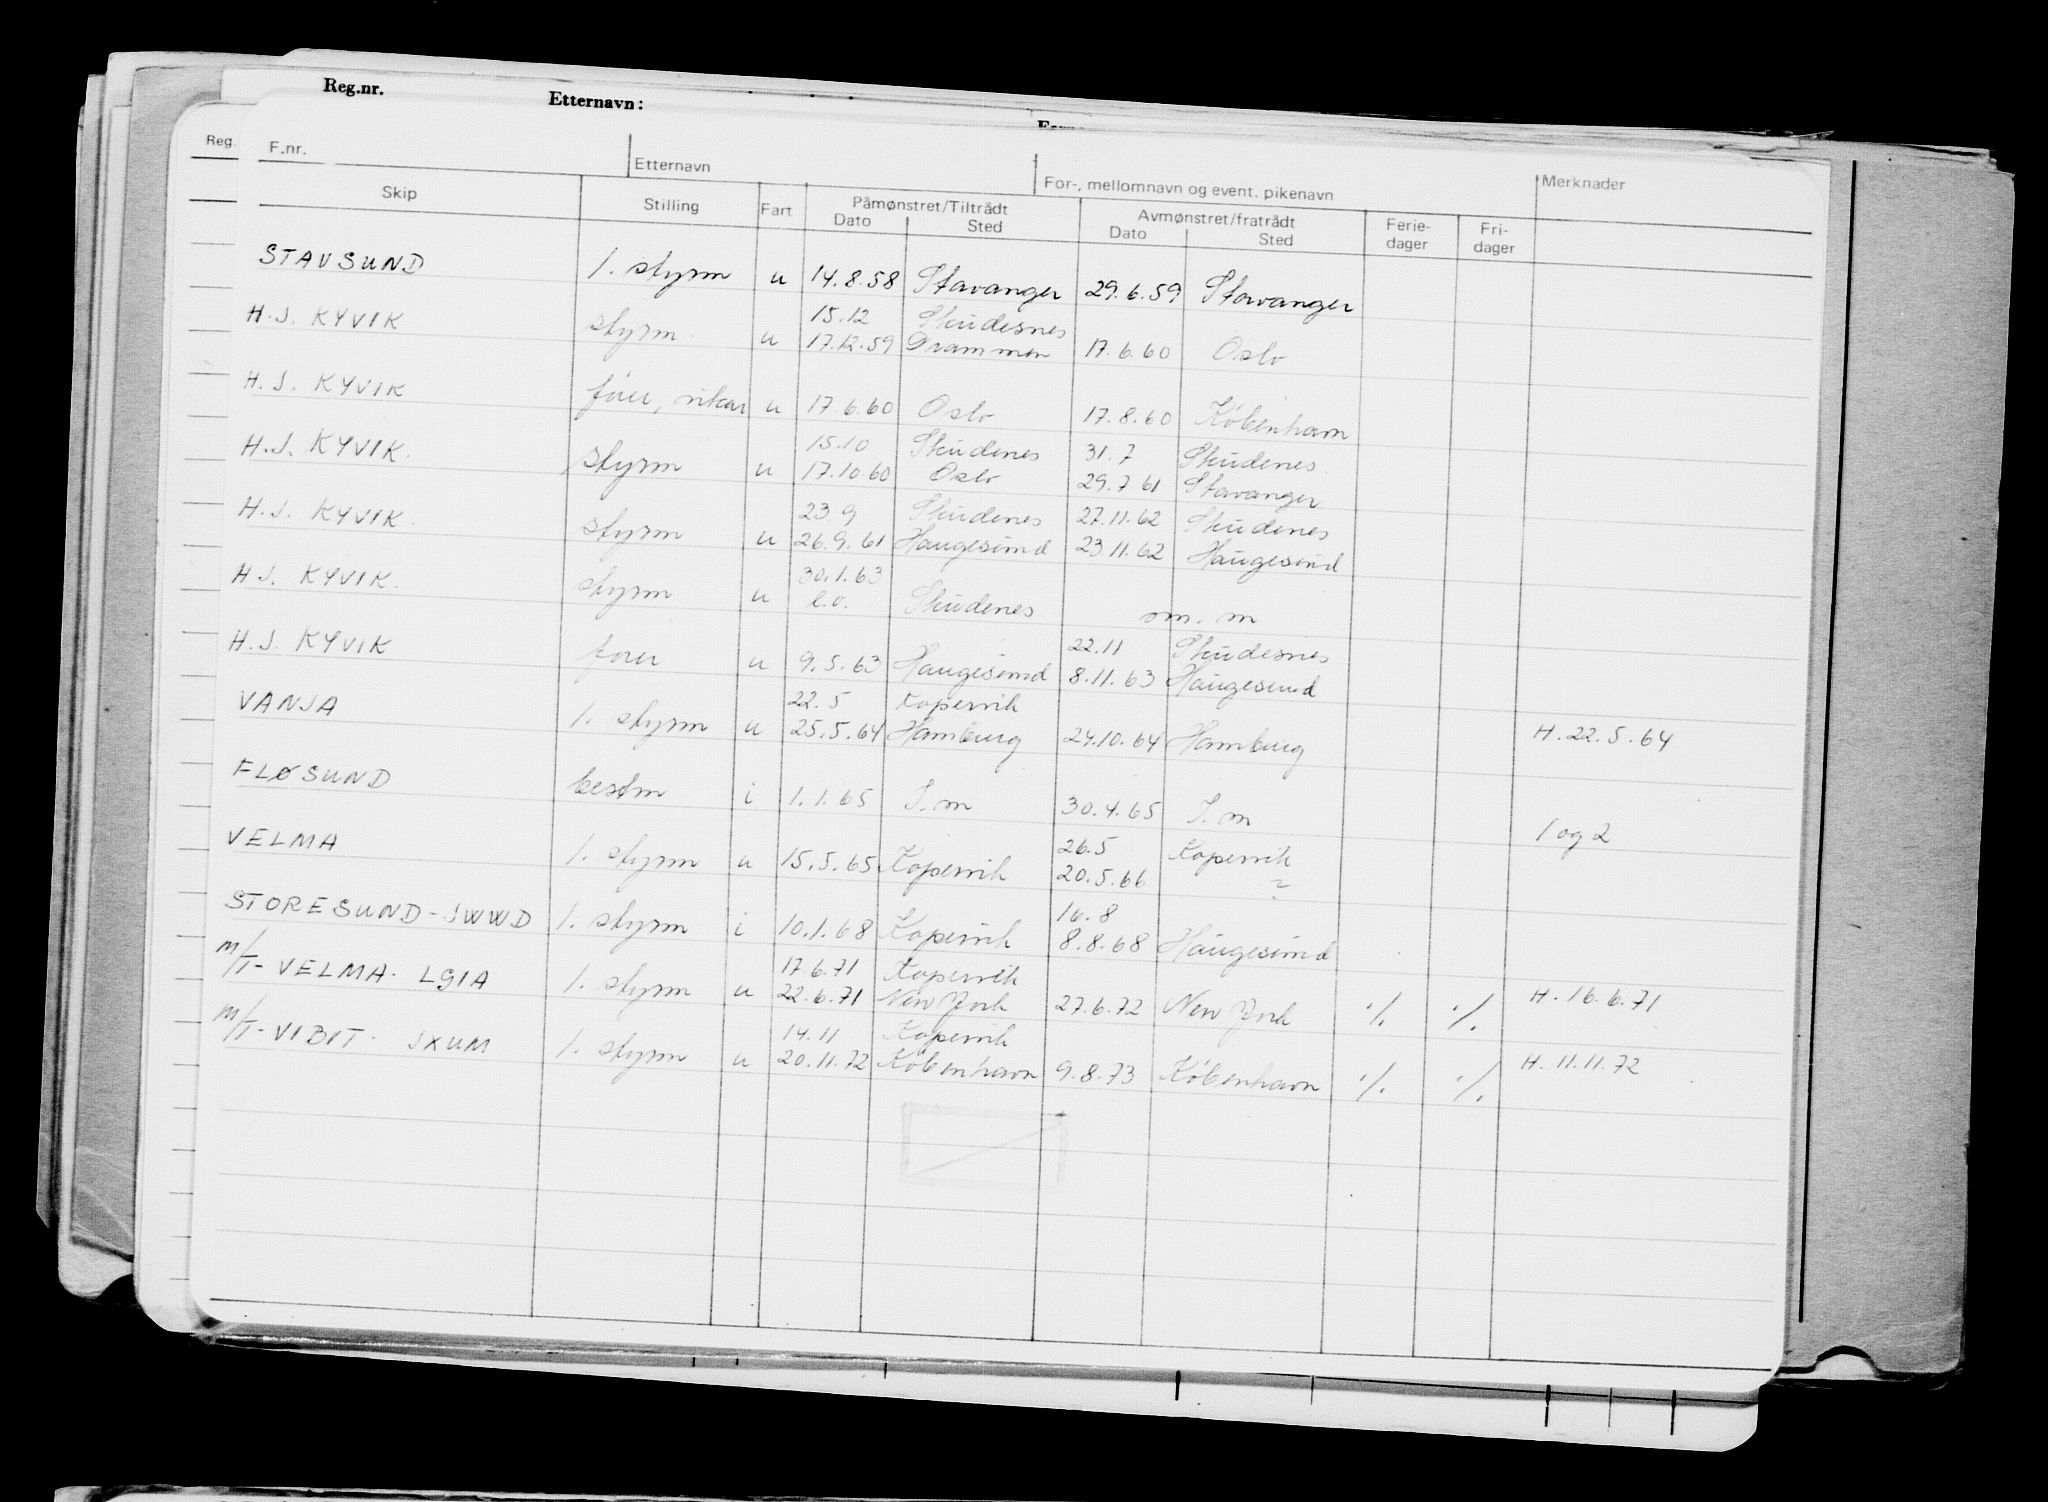 Reg.nr. Etternavn:
Reg. F.nr. Etternavn For-, mellomnavn og event. pikenavn Merknader
Skip Stilling Fart Påmønstret/Tiltrådt Avmønstret/fratrådt Ferie- Fri-
Dato Sted Dato Sted dager dager
STAVSUND 1. styrm u 14.8.58 Stavanger 29.6.59 Stavanger
15.12 Skudesnes
H.J. KYVIK styrm. u 17.12.59 Drammen 17.6.60 Oslo
H.J. KYVIK fører, vikar u 17.6.60 Oslo 17.8.60 København
15.10 Skudenes 31.7 Skudenes
H.J. KYVIK. styrm u 17.10.60 Oslo 29.7 61 Stavanger
23.9 Skudenes 27.11.62 Skudenes
H.J. KYVIK. styrm u 26.9.61 Haugesund 23.11.62 Haugesund
30.1.63
H.J. KYVIK. styrm u e.o. Skudenes om. m
22.11 Skudesnes
H.J. KYVIK fører u 9.5.63 Haugesund 8.11.63 Haugesund
22.5 Kopervik
VANJA 1. styrm u 25.5.64 Hamburg 24.10.64 Hamburg H.22.5.64
FLØSUND bestm i 1.1.65 I.m 30.4.65 I.m 1 og 2
26.5 Kopervik
VELMA 1. styrm u 15.5.65 Kopervik 20.5.66 "
16.8
STORESUND-JWWD 1. styrm i 10.1.68 Kopervik 8.8.68 Haugesund
17.6.71 Kopervik
M/T- VELMA. LGIA 1. styrm u 22.6.71 New York 27.6.72 New York ./. ./. H.16.6.71
14.11 Kopervik
M/T- VIBIT. JXUM 1. styrm u 20.11.72 København 9.8.73 København ./. ./. H.11.11.72